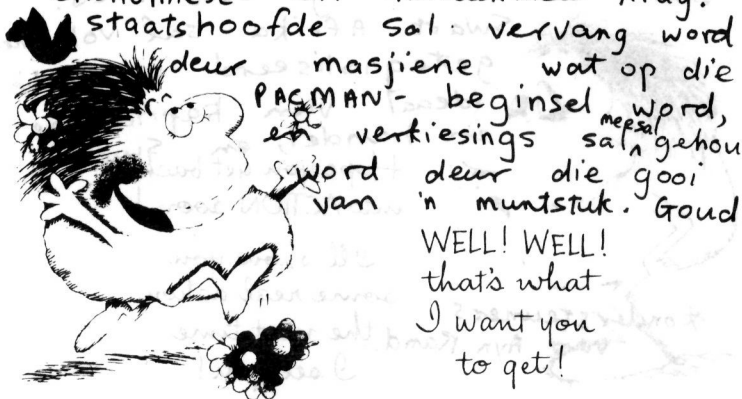 staatshoofde sal vervang word
deur masjiene wat op die
PACMAN- beginsel word,
en verkiesings sal meesal gehou
word deur die gooi
van 'n muntstuk. Goud
WELL! WELL!
that's what
I want you
to get!